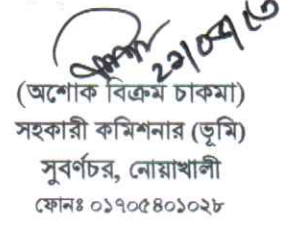 ২৯/০৫/১৩
(অশোক বিক্রম চাকমা)
সহকারী কমিশনার (ভূমি)
সুবর্ণচর, নোয়াখালী
ফোনঃ ০১৭০৫৪০১০২৮